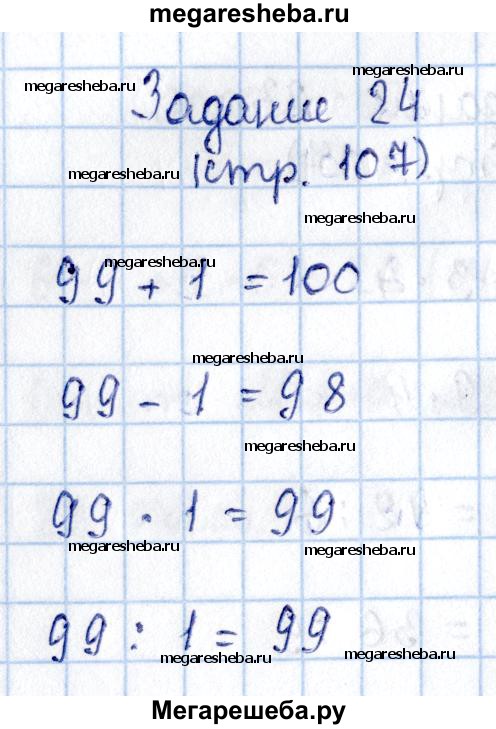 megaresheba.ru
megaresheba.ru
megaresheba.ru
Задание 24
megaresheba.ru
(стр. 107)
megaresheba.ru
megaresheba.ru
99 + 1 = 100
megaresheba.ru
99 - 1 = 98
megaresheba.ru
99 · 1 = 99
megaresheba.ru
megaresheba.ru
99 : 1 = 99
megaresheba.ru
megaresheba.ru
Мегарешеба.ру